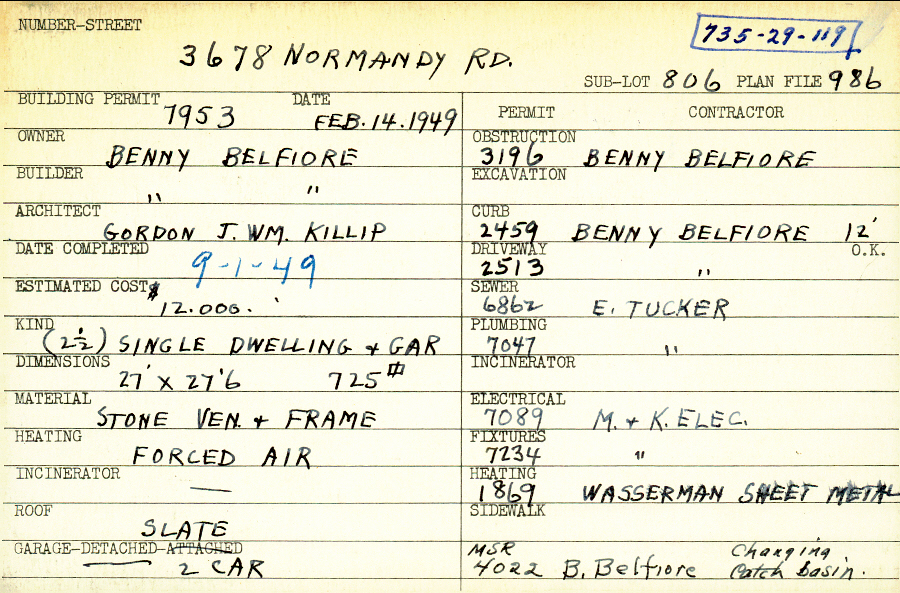 NUMBER-STREET
735-29-119
3678 NORMANDY RD.
SUB-LOT 806 PLAN FILE 986
BUILDING PERMIT 7953 DATE FEB. 14. 1949
OWNER BENNY BELFIORE
BUILDER " "
ARCHITECT GORDON J. WM. KILLIP
DATE COMPLETED 9-1-49
ESTIMATED COST $ 12.000.
KIND (2½) SINGLE DWELLING + GAR
DIMENSIONS 27' X 27'6 725#
MATERIAL STONE VEN. + FRAME
HEATING FORCED AIR
INCINERATOR —
ROOF SLATE
GARAGE-DETACHED-ATTACHED 2 CAR
PERMIT CONTRACTOR
OBSTRUCTION 3196 BENNY BELFIORE
EXCAVATION
CURB 2459 BENNY BELFIORE 12' O.K.
DRIVEWAY 2513 "
SEWER 6862 E. TUCKER
PLUMBING 7047 "
INCINERATOR
ELECTRICAL 7089 M. + K. ELEC.
FIXTURES 7234 "
HEATING 1869 WASSERMAN SHEET METAL
SIDEWALK
MSR 4022 B. Belfiore Changing Catch basin.